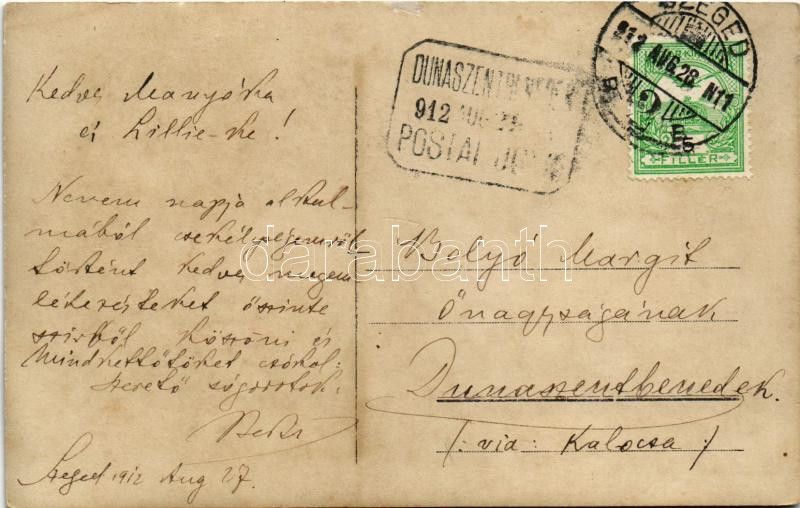 Kedves Manyóka
és Lillie-ke!
Nevem napja alkal-
mából csekélységemről
történt kedves megem
lékezésteket őszinte
szivből köszöni és
Mindkettőtöket csókol:
Szerető sógorotok.
Szeged 1912 Aug 27.
DUNASZENTBENEDEK
912 AUG
POSTAI
SZEGED
912 AUG 28 N11
FILLER
Belyó Margit
Őnagyságának
Dunaszentbenedek.
/: via: Kalocsa /
darabanth.com